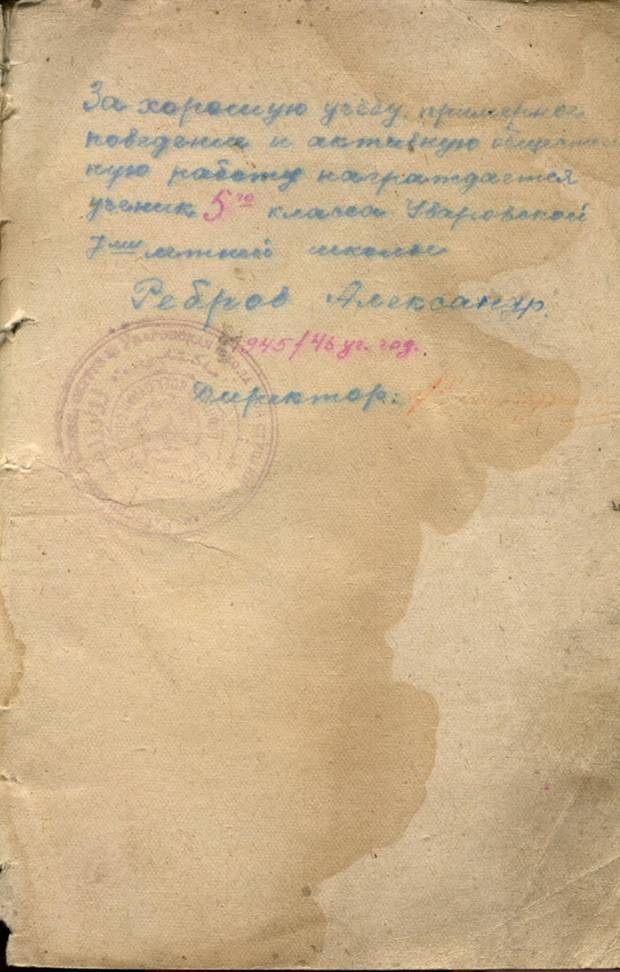 За хорошую учёбу, примерное
поведение и активную
ную работу награждается
ученик 5го класса Уваровской
7ми летней школы
Ребров Александр.
1945/46 уч. год.
Директор: